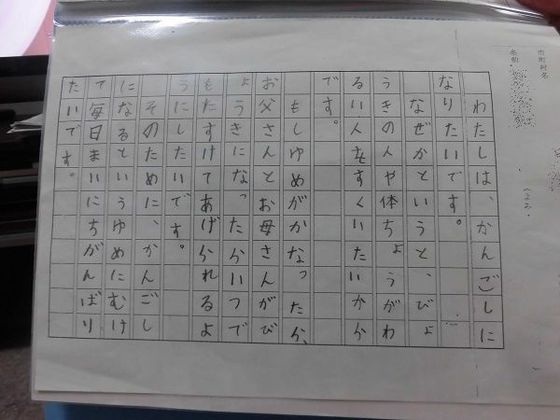 市町村名
名前
わたしは、かんごしに
なりたいです。
なぜかというと、びょ
うきの人や体ちょうがわ
るい人をすくいたいから
です。
もしゆめがかなったら、
お父さんとお母さんがび
ょうきになったらいつで
もたすけてあげられるよ
うにしたいです。
そのために、かんごし
になるというゆめにむけ
て毎日まいにちがんばり
たいです。